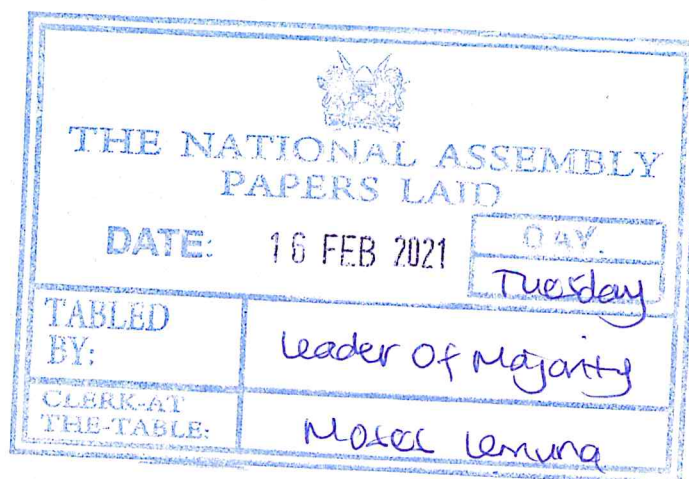 THE NATIONAL ASSEMBLY
PAPERS LAID
DATE: 16 FEB 2021
DAY.
Tuesday
TABLED
BY:
Leader Of Majority
CLERK-AT
THE-TABLE:
Moses Lemuna